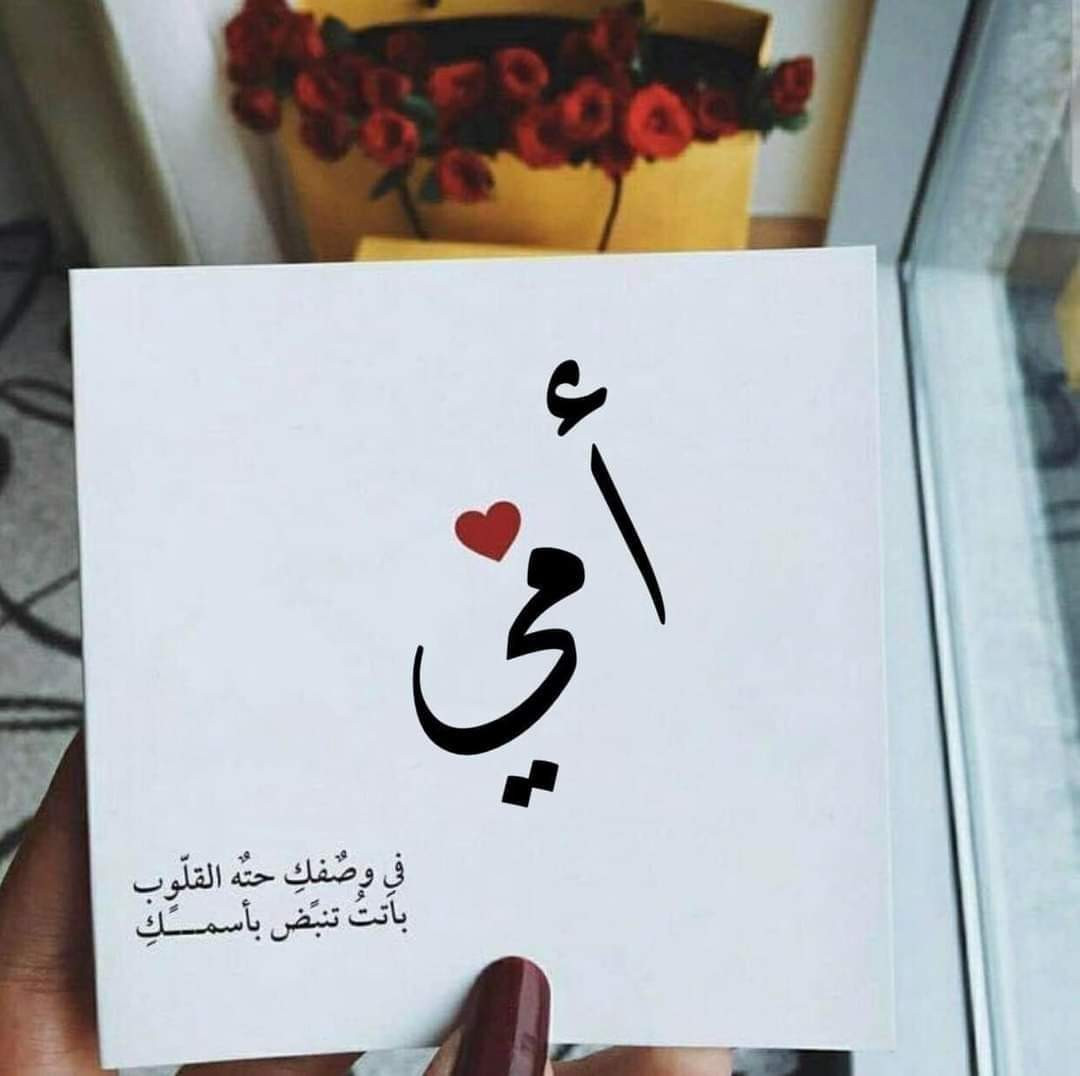 أمي
في وصٌفكِ حتٌه القلّوب
باَتتُ تنبًض بأسمـــكِ